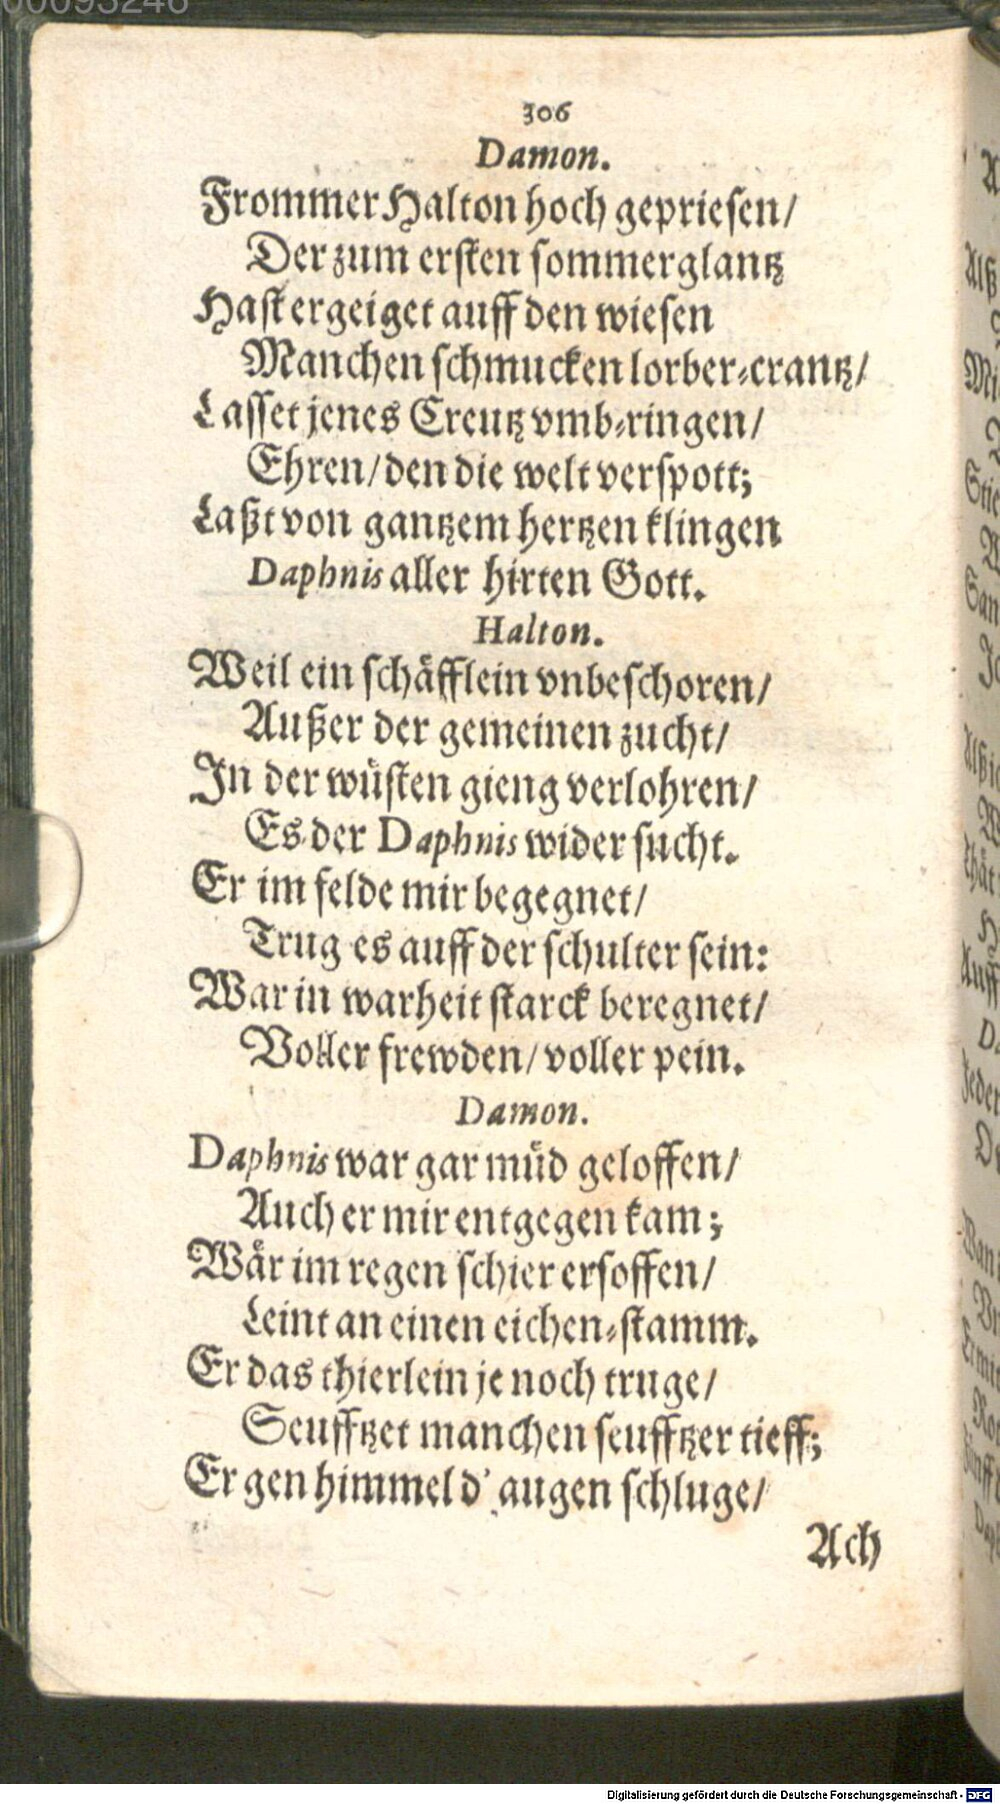 00093246
306
Damon.
Frommer Halton hoch gepriesen/
Der zum ersten sommerglantz
Hast ergeiget auff den wiesen
Manchen schmucken lorber-crantz/
Lasset jenes Creutz vmb-ringen/
Ehren/ den die welt verspott;
Laßt von gantzem hertzen klingen
Daphnis aller hirten Gott.
Halton.
Weil ein schäfflein vnbeschoren/
Außer der gemeinen zucht/
In der wüsten gieng verlohren/
Es der Daphnis wider sucht.
Er im felde mir begegnet/
Trug es auff der schulter sein:
War in warheit starck beregnet/
Voller frewden/ voller pein.
Damon.
Daphnis war gar müd geloffen/
Auch er mir entgegen kam;
Wär im regen schier ersoffen/
Leint an einen eichen-stamm.
Er das thierlein je noch truge/
Seufftzet manchen seufftzer tieff;
Er gen himmel d' augen schluge/
Ach
Digitalisierung gefördert durch die Deutsche Forschungsgemeinschaft - DFG